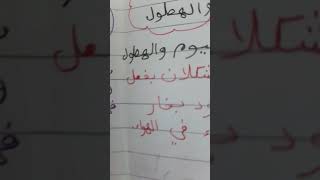 والهطول
يوم والهطول
شكلان بفعل
ود بخار
ء في الهواء